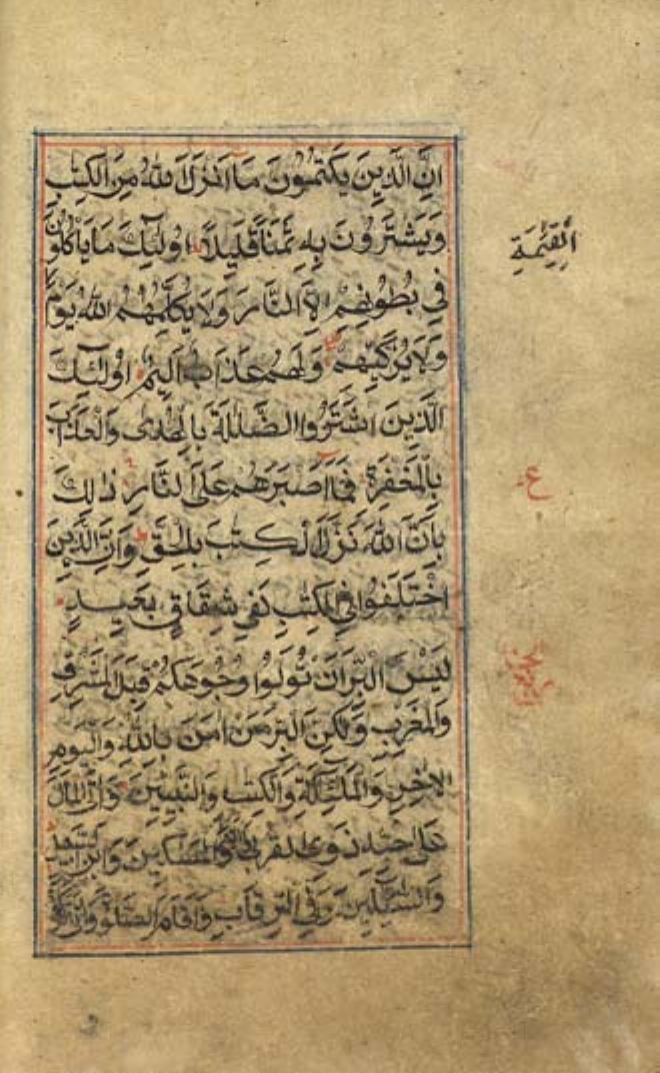 اِنَّ الَّذِينَ يَكْتُمُونَ مَا اَنْزَلَ اللهُ مِنَ الْكِتٰبِ
وَيَشْتَرُونَ بِهِ ثَمَنًا قَلِيلًا اُولٰئِكَ مَا يَاْكُلُونَ
فِي بُطُونِهِمْ اِلَّا النَّارَ وَلَا يُكَلِّمُهُمُ اللهُ يَوْمَ
الْقِيٰمَةِ
وَلَا يُزَكِّيهِمْ وَلَهُمْ عَذَابٌ اَلِيمٌ اُولٰئِكَ
الَّذِينَ اشْتَرَوُا الضَّلٰلَةَ بِالْهُدٰى وَالْعَذَابَ
بِالْمَغْفِرَةِ فَمَا اَصْبَرَهُمْ عَلَى النَّارِ ذٰلِكَ
ع
بِاَنَّ اللهَ نَزَّلَ الْكِتٰبَ بِالْحَقِّ وَاِنَّ الَّذِينَ
اخْتَلَفُوا فِي الْكِتٰبِ لَفِي شِقَاقٍ بَعِيدٍ
لَيْسَ الْبِرَّ اَنْ تُوَلُّوا وُجُوهَكُمْ قِبَلَ الْمَشْرِقِ
وَالْمَغْرِبِ وَلٰكِنَّ الْبِرَّ مَنْ اٰمَنَ بِاللهِ وَالْيَوْمِ
الْاٰخِرِ وَالْمَلٰئِكَةِ وَالْكِتٰبِ وَالنَّبِيِّينَ وَاٰتَى الْمَالَ
عَلٰى حُبِّهِ ذَوِي الْقُرْبٰى وَالْمَسٰكِينَ وَابْنَ السَّبِيلِ
وَالسَّائِلِينَ وَفِي الرِّقَابِ وَاَقَامَ الصَّلٰوةَ وَاٰتَى الزَّكٰوةَ